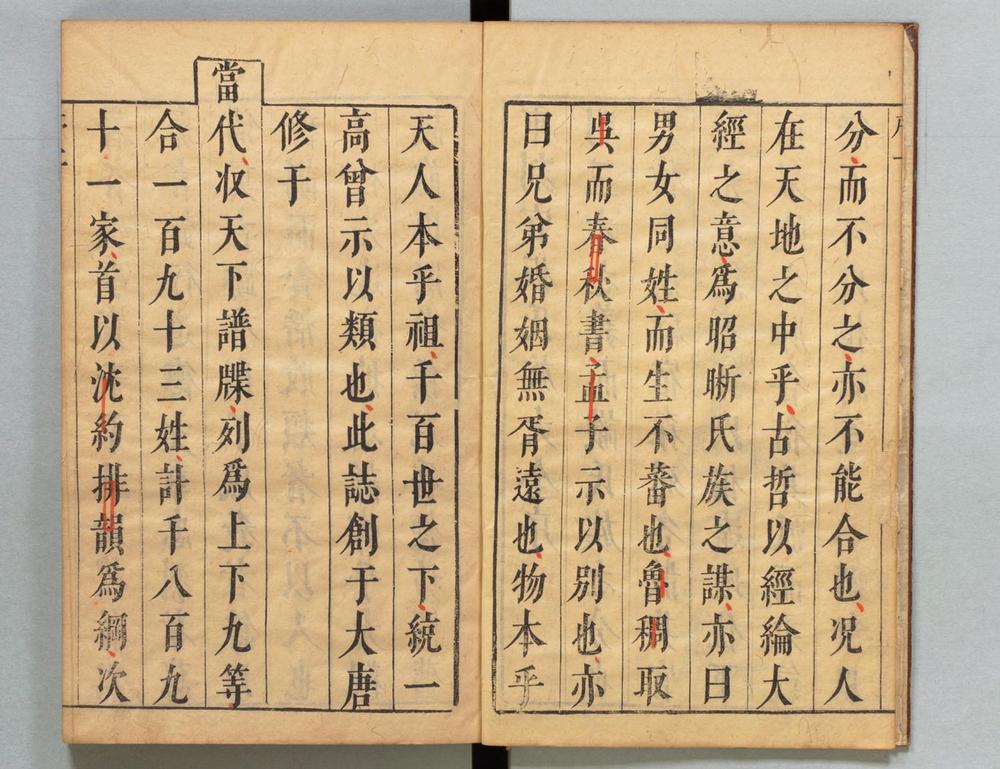 分而不分之亦不能合也况人
在天地之中乎古哲以經綸大
經之意爲昭晰氏族之謀亦曰
男女同姓而生不蕃也魯稠取
吳而春秋書孟子示以別也亦
曰兄弟婚姻無胥遠也物本乎
天人本乎祖千百世之下統一
高曾示以類也此誌創于大唐
修于
當代収天下譜牒刻爲上下九等
合一百九十三姓計千八百九
十一家首以沈約排韻爲綱次